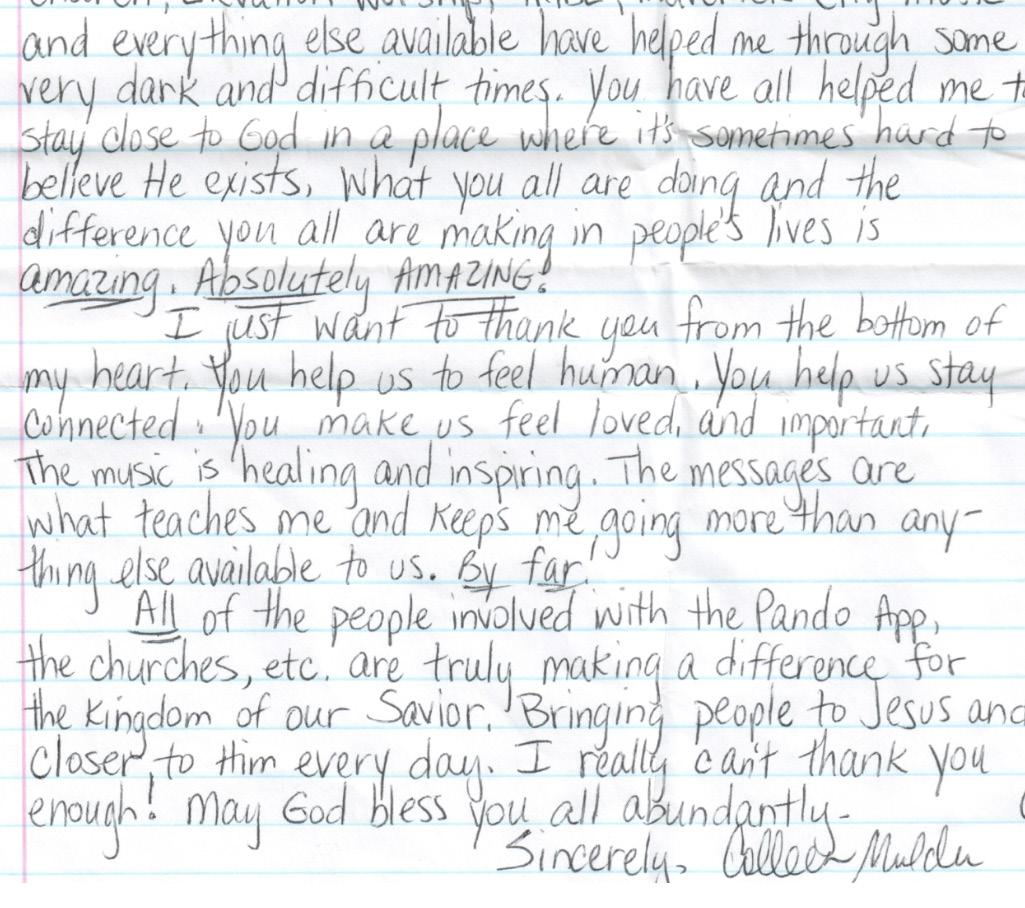 Worship, Music, Maverick City Music
and everything else available have helped me through some
very dark and difficult times. You have all helped me t
stay close to God in a place where it's sometimes hard to
believe He exists. What you all are doing and the
difference you all are making in people's lives is
amazing. Absolutely AMAZING!
I just want to thank you from the bottom of
my heart. You help us to feel human. You help us stay
connected. You make us feel loved, and important.
The music is healing and inspiring. The messages are
what teaches me and keeps me going more than any-
thing else available to us. By far!
All of the people involved with the Pando App,
the churches, etc. are truly making a difference for
the Kingdom of our Savior. Bringing people to Jesus and
closer to Him every day. I really can't thank you
enough! May God bless you all abundantly.
Sincerely, Colleen Mulder